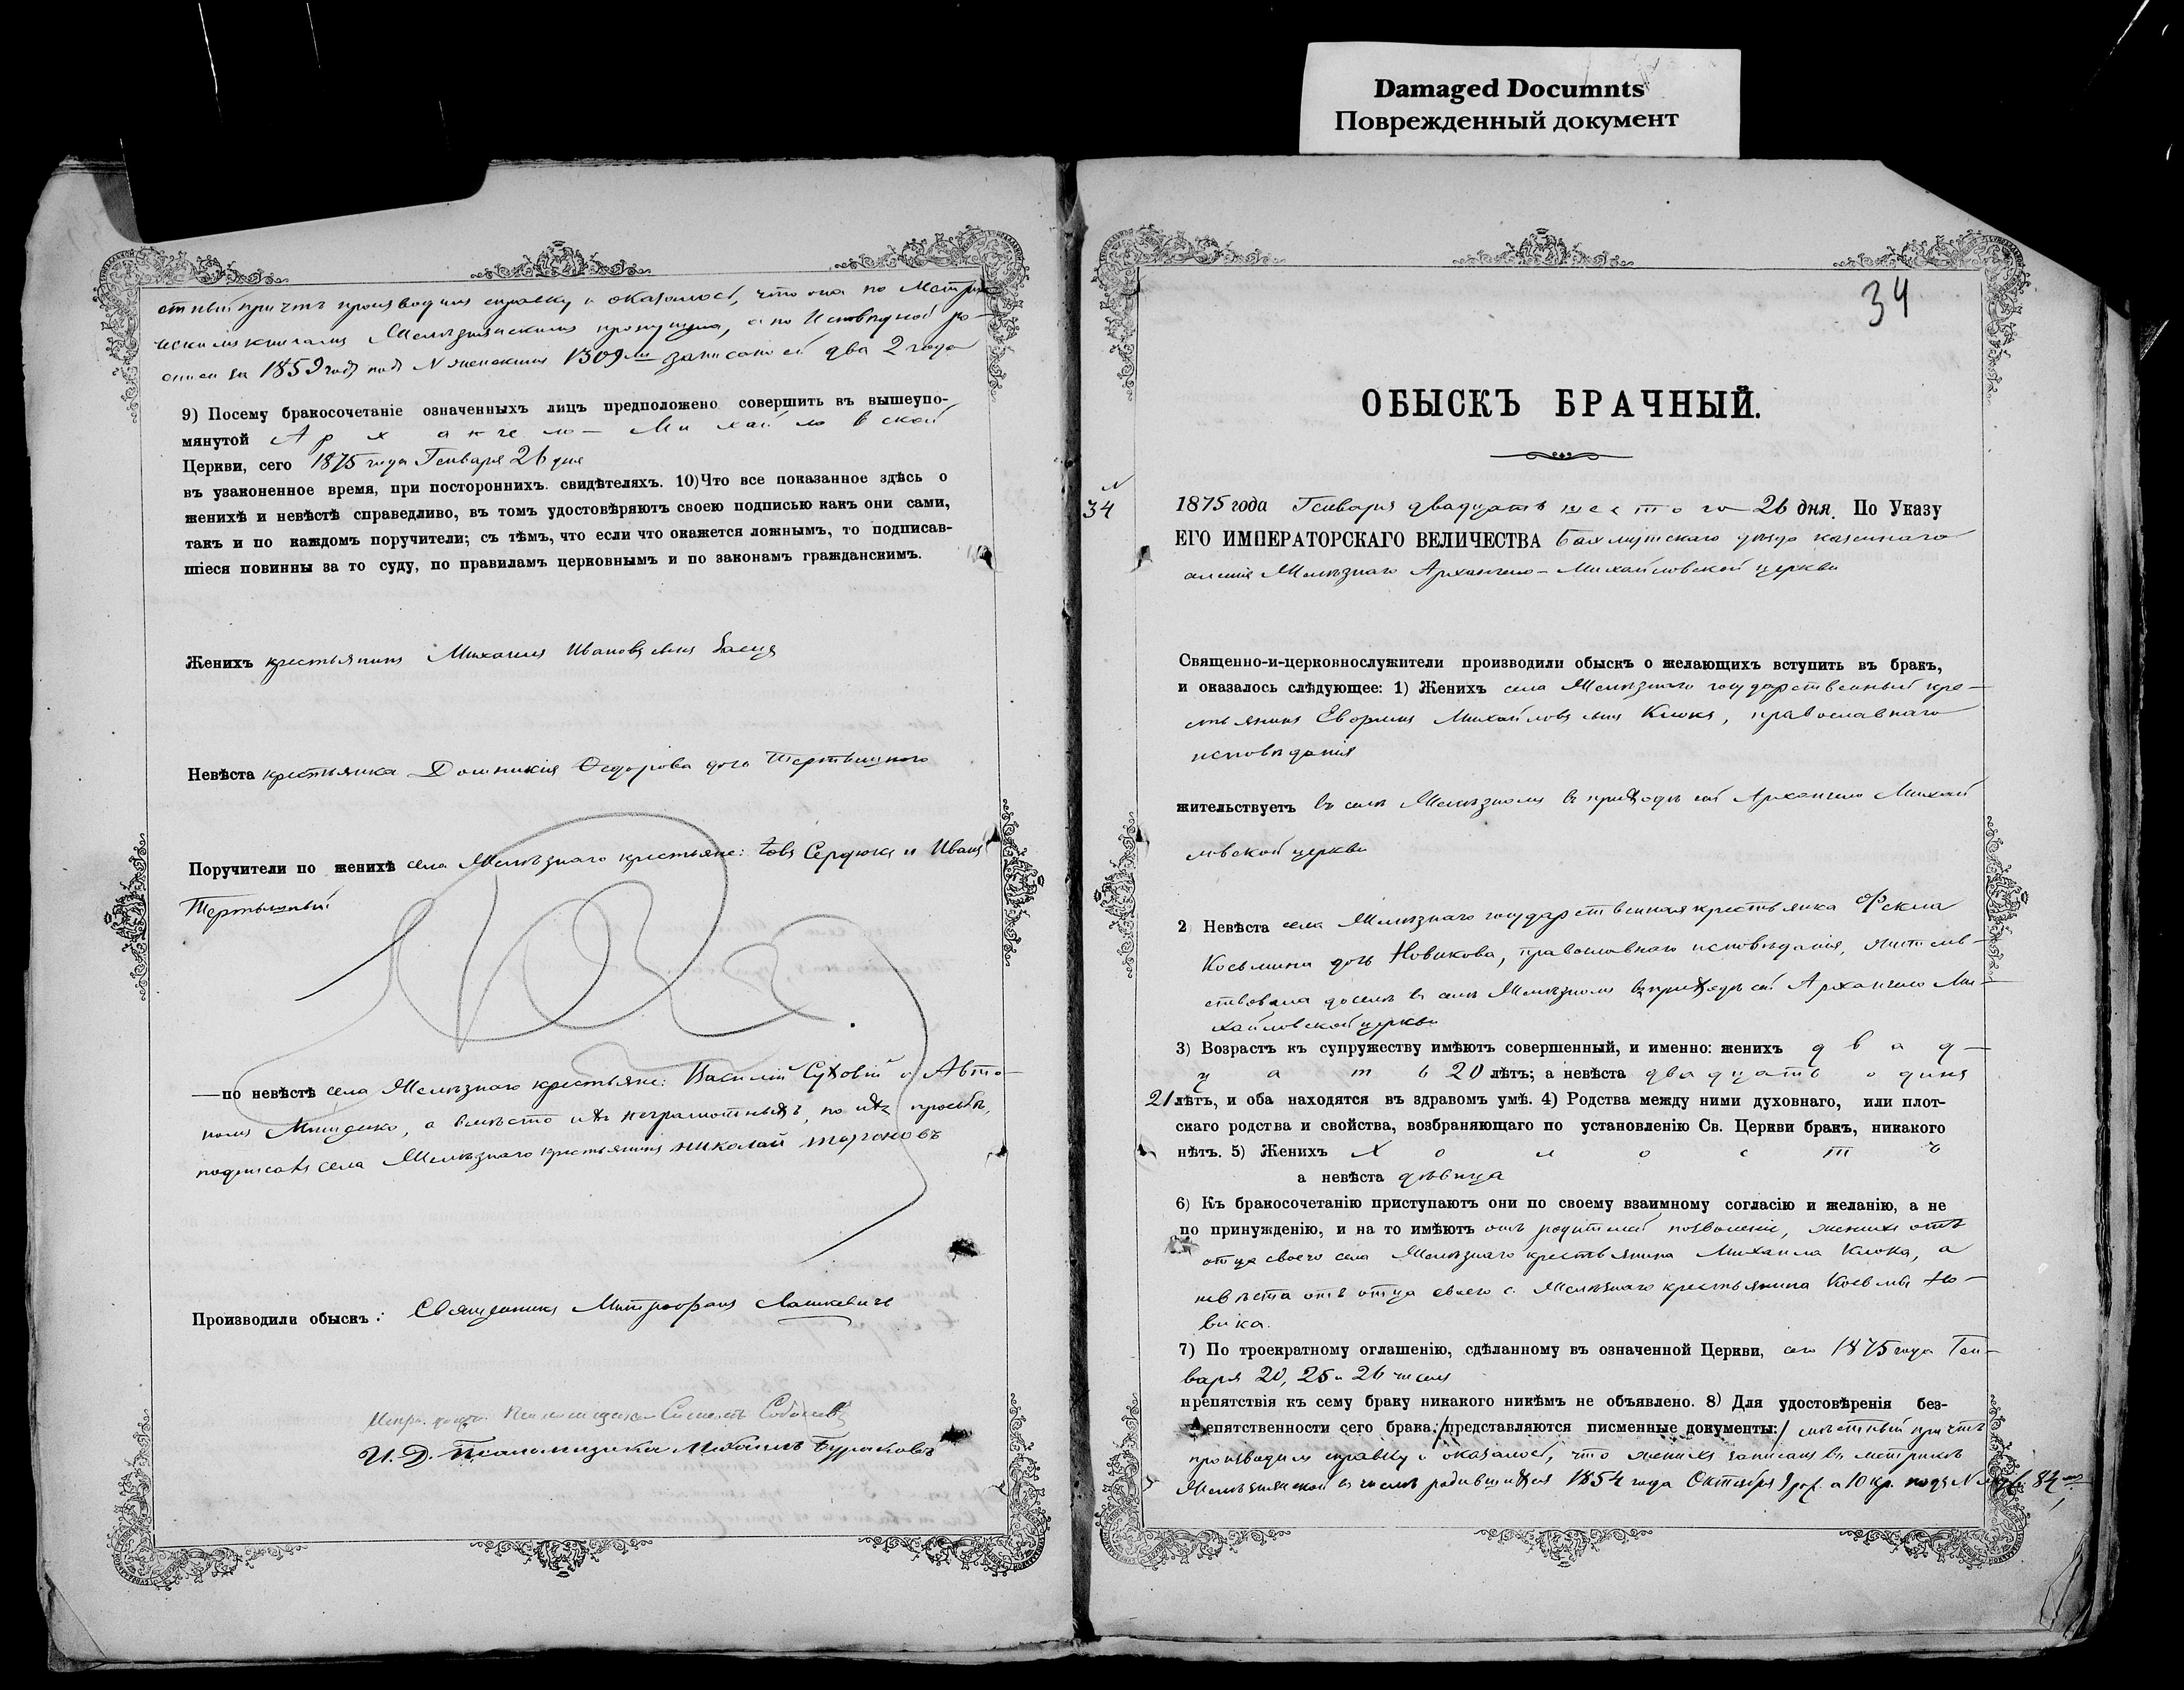 Damaged Documnts
Поврежденный документ
стный причтъ производилъ справку и оказалось, что она по Метри-
ческимъ книгамъ Желѣзнянскимъ пропущена, а по Исповѣдной ро-
списи за 1859 годъ подъ N женскимъ 1309 записано ей два 2 года
9) Посему бракосочетаніе означенныхъ лицъ предположено совершить въ вышеупо-
мянутой Архангело-Михайловской
Церкви, сего 1875 года Генваря 26 дня
въ узаконенное время, при постороннихъ. свидѣтеляхъ. 10) Что все показанное здѣсь о
женихѣ и невѣстѣ справедливо, въ томъ удостовѣряютъ своею подписью какъ они сами,
такъ и по каждомъ поручители; съ тѣмъ, что если что окажется ложнымъ, то подписав-
шіеся повинны за то суду, по правиламъ церковнымъ и по законамъ гражданскимъ.
Женихъ крестьянинъ Михаилъ Ивановъ сынъ Заецъ
Невѣста крестьянка Домникія Ѳедорова дочь Тертышного
Поручители по женихѣ села Желѣзнаго крестьяне: Іовъ Сердюкъ и Иванъ
Тертышный
— по невѣстѣ села Желѣзнаго крестьяне: Василій Суховій и Авто-
номъ, а вмѣсто ихъ неграмотныхъ, по ихъ просьбѣ,
подписалъ села Желѣзнаго крестьянинъ николай торгоновъ
Производили обыскъ: Священникъ Митрофанъ Лашкевичъ
И. Д. Псаломщика Михаилъ Бураковъ
34
ОБЫСКЪ БРАЧНЫЙ.
N
34
1875 года Генваря двадцать шестого 26 дня. По Указу
ЕГО ИМПЕРАТОРСКАГО ВЕЛИЧЕСТВА Бахмутскаго уѣзда казеннаго
селенія Желѣзнаго Архангело-Михайловской церкви
Священно-и-церковнослужители производили обыскъ о желающихъ вступить въ бракъ,
и оказалось слѣдующее: 1) Женихъ села Желѣзнаго государственный кре-
стьянинъ Евфимъ Михайловъ сынъ Клюка, православнаго
исповѣданія
жительствуетъ въ селѣ Желѣзномъ въ приходѣ сей Архангело Михай
ловской церкви
2) Невѣста села Желѣзнаго государственная крестьянка Ѳекла
Косьмина дочь Новикова, православнаго исповѣданія, житель-
ствовала доселѣ въ селѣ Желѣзномъ въ приходѣ сей Архангело Ми-
хайловской церкви
3) Возрастъ къ супружеству имѣютъ совершенный, и именно: женихъ двад-
цать 20 лѣтъ; а невѣста двадцать одинъ
21 лѣтъ, и оба находятся въ здравомъ умѣ. 4) Родства между ними духовнаго, или плот-
скаго родства и свойства, возбраняющаго по установленію Св. Церкви бракъ, никакого
нѣтъ. 5) Женихъ холостъ
а невѣста дѣвица
6) Къ бракосочетанію приступаютъ они по своему взаимному согласію и желанію, а не
по принужденію, и на то имѣютъ отъ родителей позволеніе, женихъ отъ
отца своего села Желѣзнаго крестьянина Михаила Клюка, а
невѣста отъ отца своего с. Желѣзнаго крестьянина Косьмы Но-
вика.
7) По троекратному оглашенію, сдѣланному въ означенной Церкви, сего 1875 года Ген-
варя 20, 25 и 26 чиселъ
препятствія къ сему браку никакого никѣмъ не объявлено. 8) Для удостовѣренія без-
препятственности сего брака:/представляются писменные документы:/ мѣстный причтъ
производилъ справку и оказалось, что женихъ записанъ въ метрикѣ
Желѣзнянской въ числѣ родившихся 1854 года Октября 9 рож. а 10 кр. подъ N муж. 84